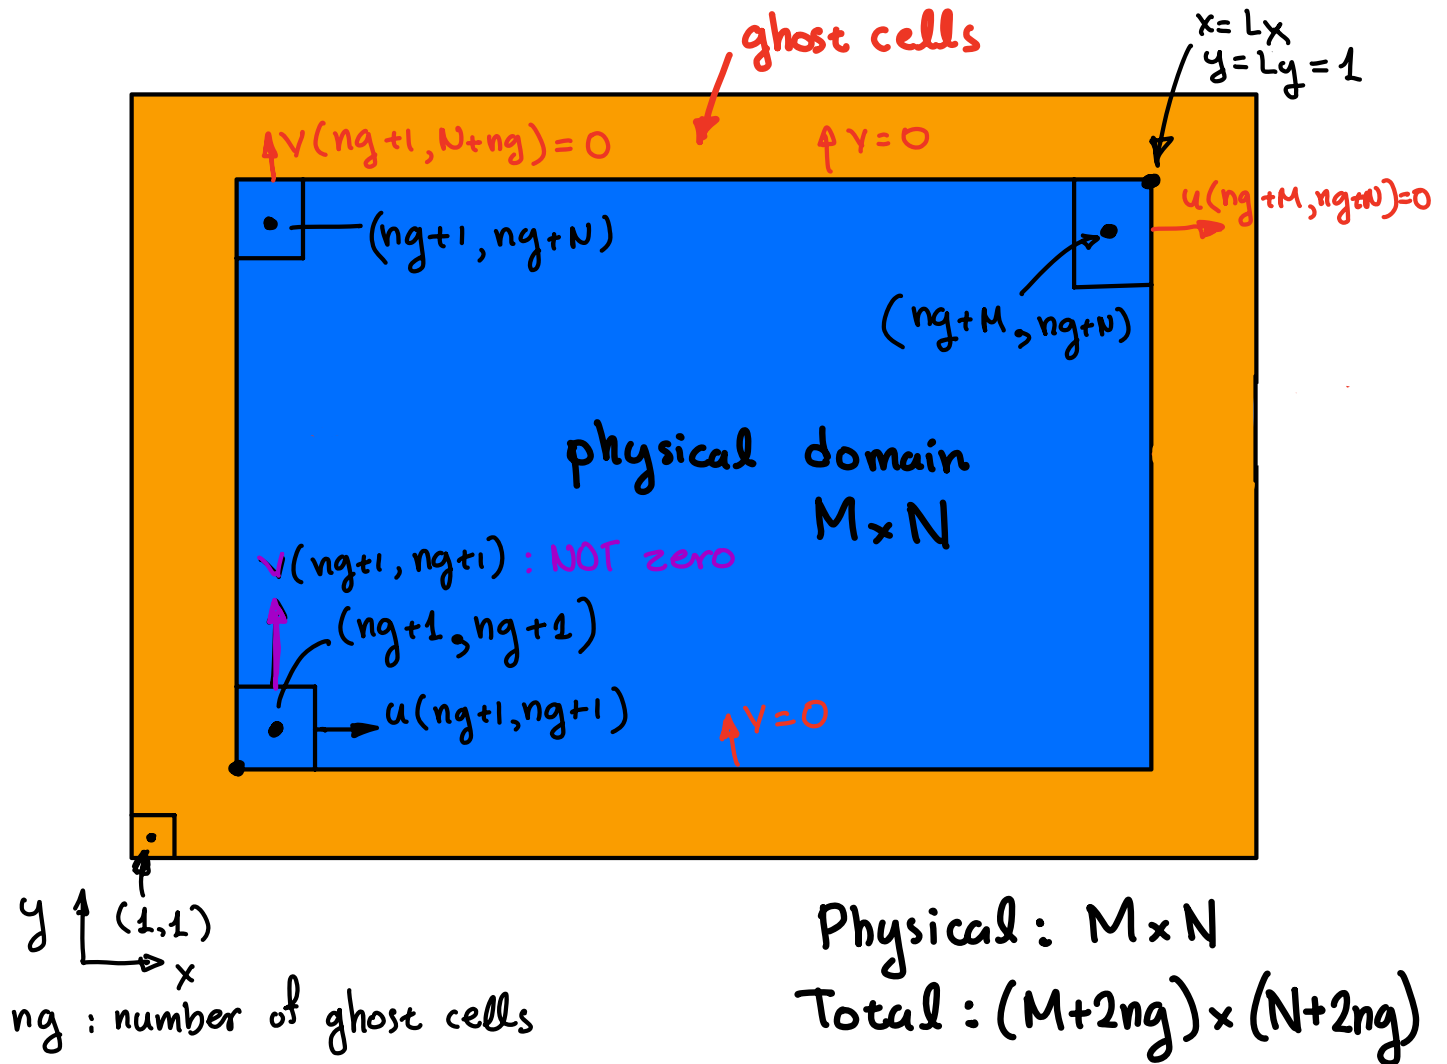 ghost cells
x=Lx
y=Ly=1
v(ng+1,N+ng)=0
v=0
u(ng+M,ng+N)=0
(ng+1,ng+N)
(ng+M,ng+N)
physical domain
M×N
v(ng+1,ng+1) : NOT zero
(ng+1,ng+1)
u(ng+1,ng+1)
v=0
y
(1,1)
x
Physical: M×N
ng : number of ghost cells
Total : (M+2ng)×(N+2ng)